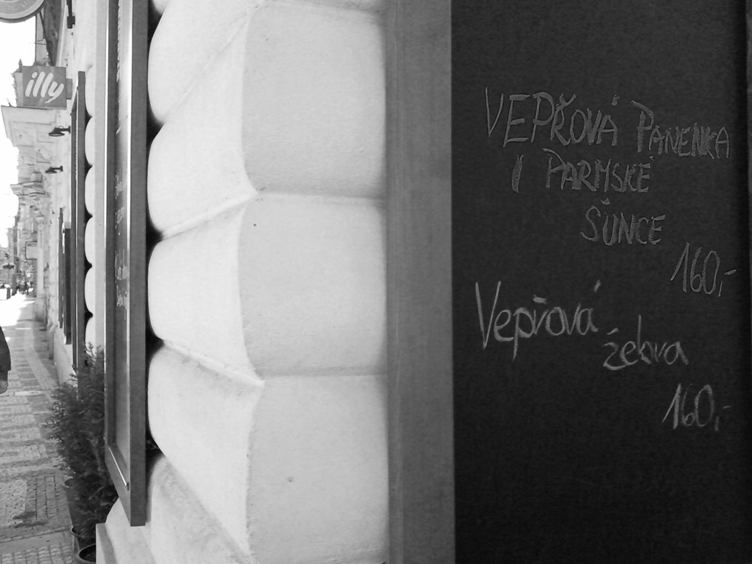 illy
VEPŘOVÁ PANENKA
I PARMSKÉ
ŠUNCE
160,-
Vepřová
žebra
160,-